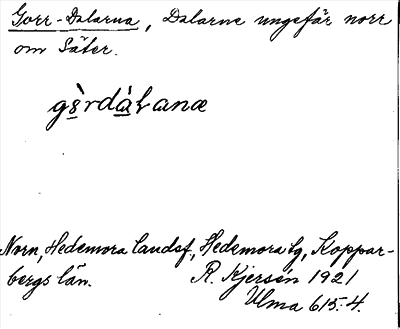 Gorr-Dalarna, Dalarne ungefär norr
om Säter.
Norn, Hedemora landsf., Hedemora tg, Koppar-
bergs län. R. Kjersén 1921
Ulma 615:4.